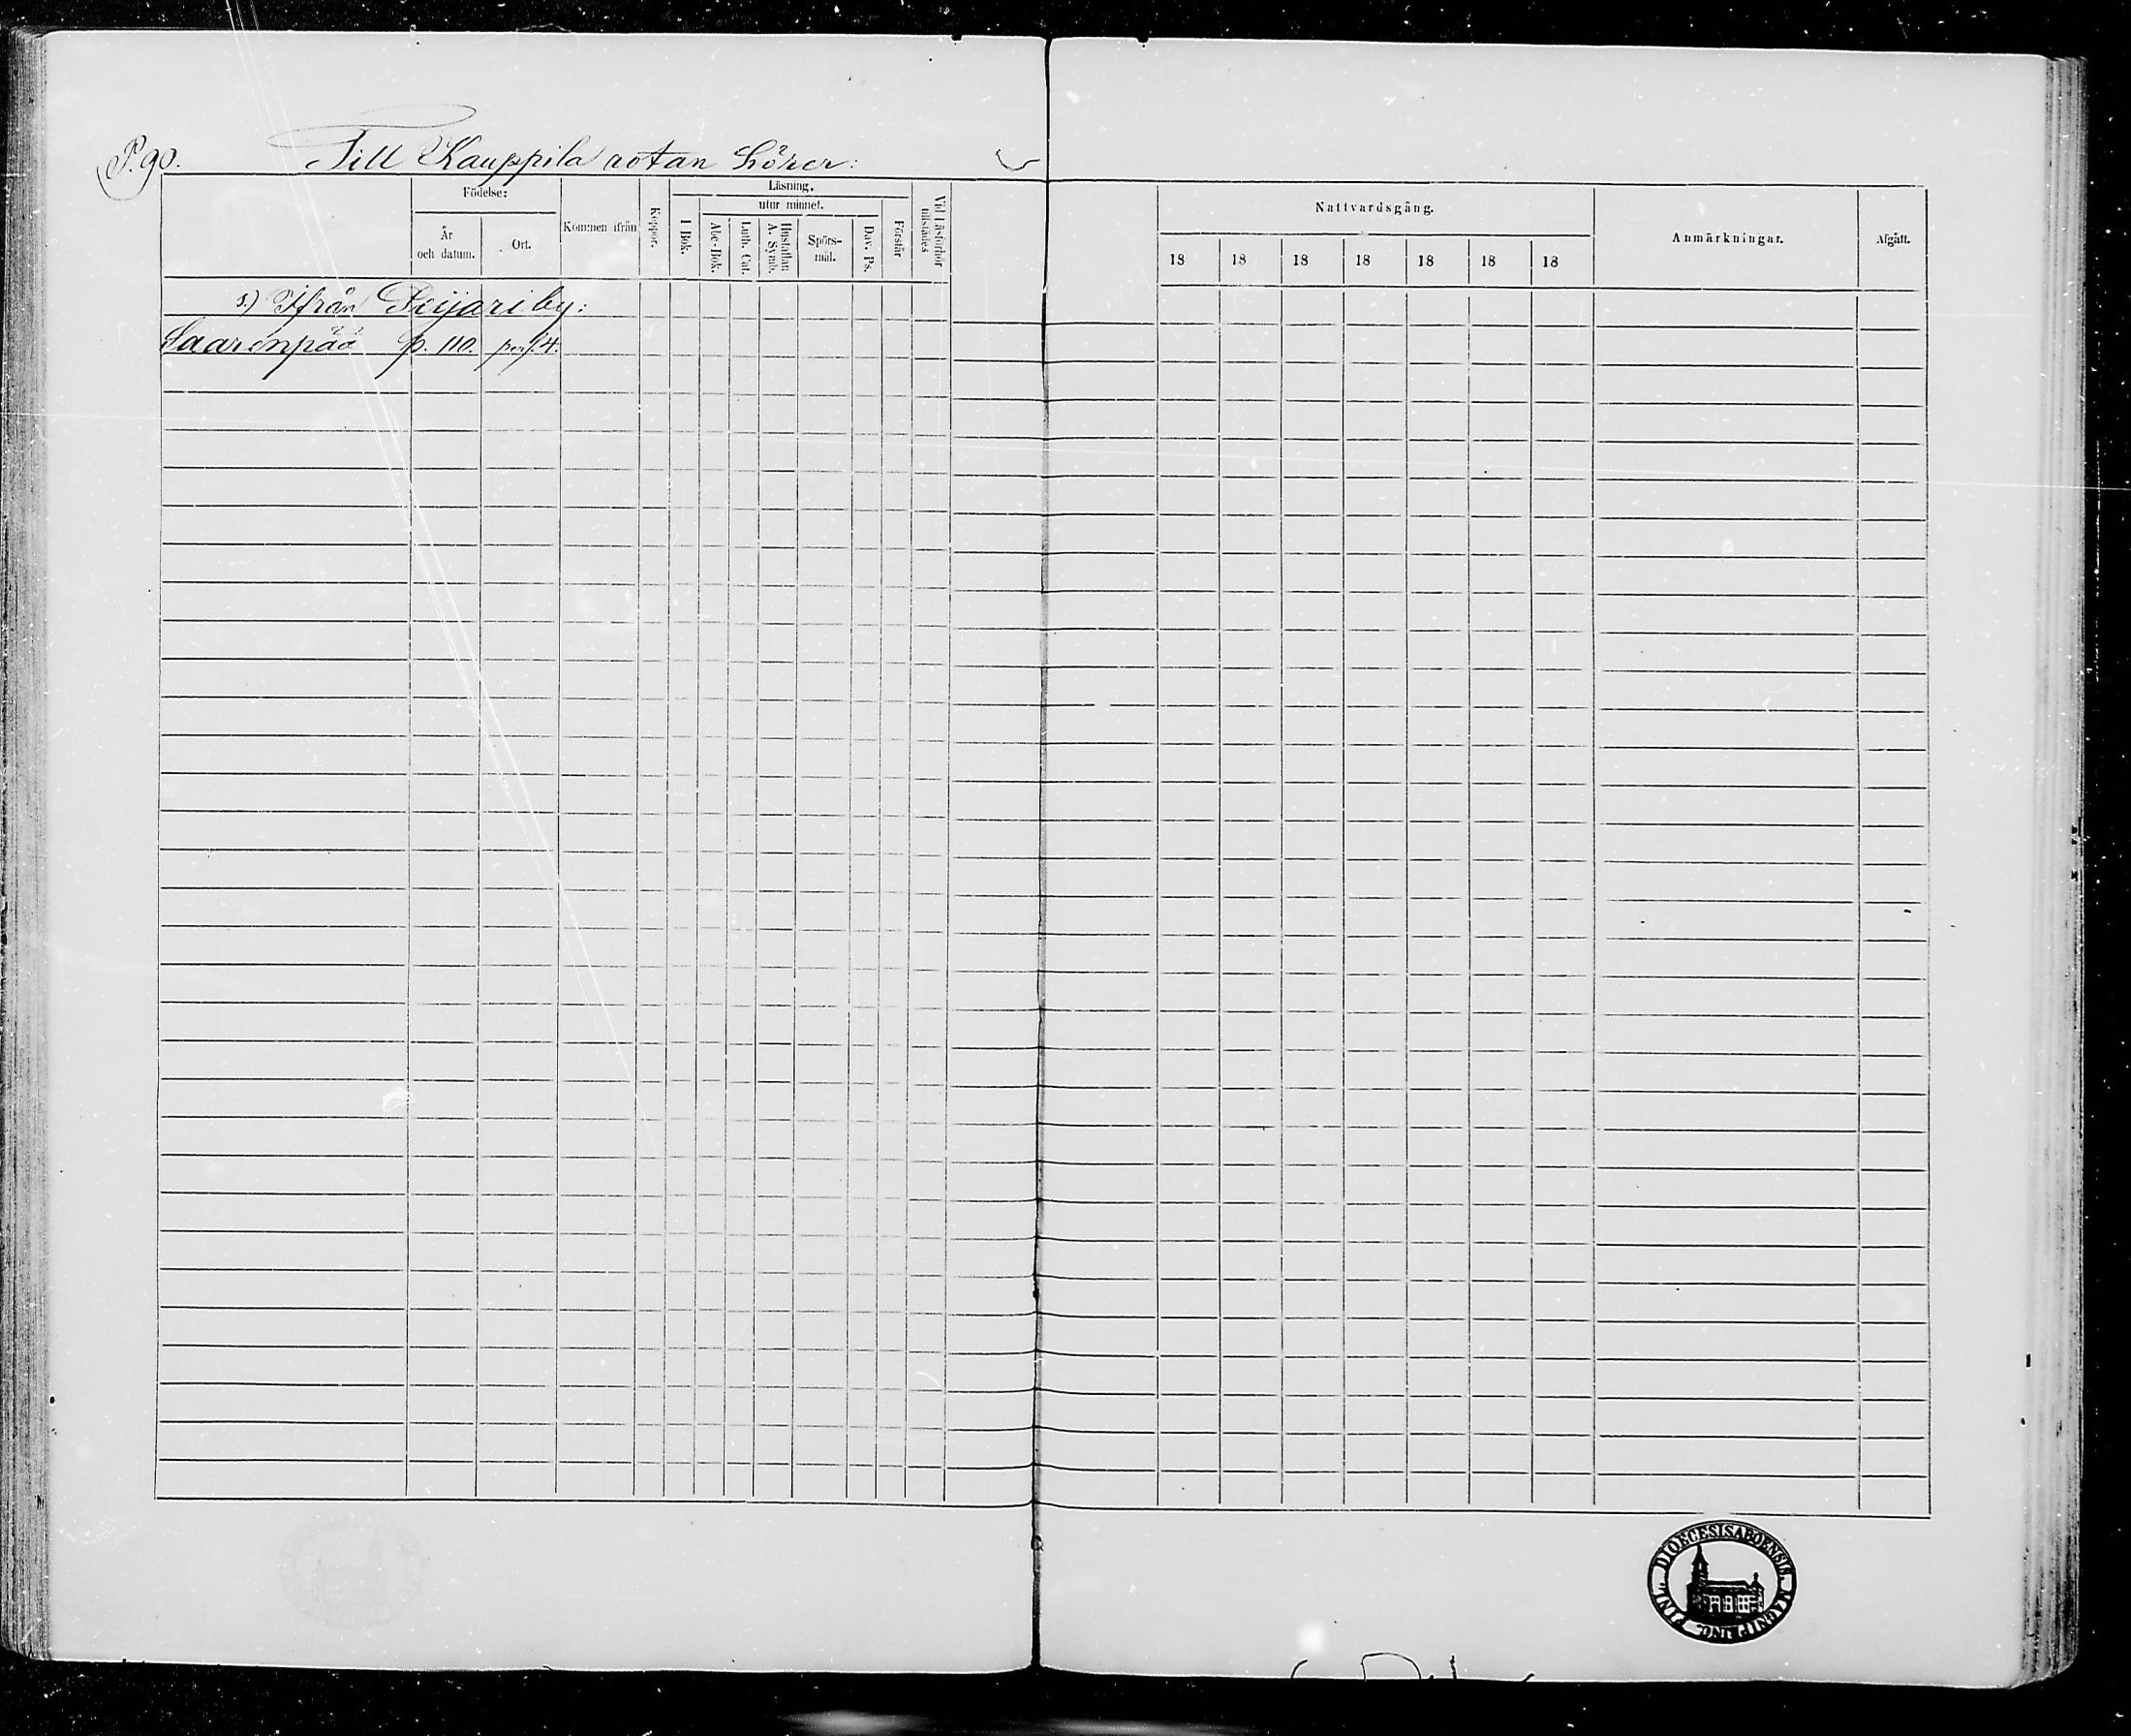 P. 90. Till Kauppila rotan hörer:
Födelse:
År och datum.
Ort.
Kommen ifrån
Koppor.
Läsning.
I Bok.
utur minnet.
Abc-Bok.
Luth. Cat.
Hustaflan A. Symb.
Spörsmål.
Dav. Ps.
Förstår
Vid Läsförhör tillstädes
Nattvardsgång.
18 18 18 18 18 18 18
Anmärkningar.
Afgått.
s.) Ifrån Seijari by:
Saarenpää p. 110.
DIOECESIS ABOENSIS. MAGNI PRINC. FINL.